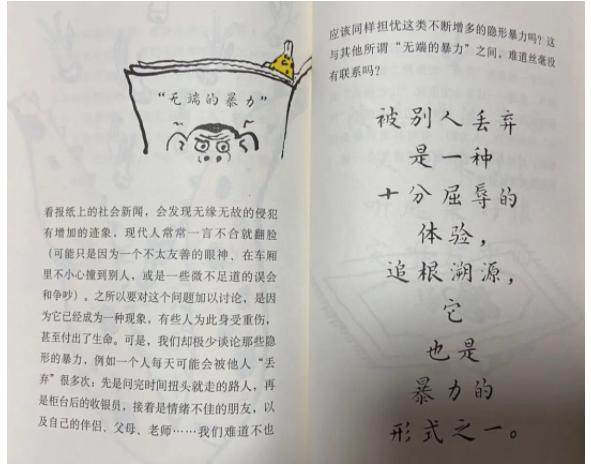 “无端的暴力”
看报纸上的社会新闻，会发现无缘无故的侵犯
有增加的迹象，现代人常常一言不合就翻脸
（可能只是因为一个不太友善的眼神、在车厢
里不小心撞到别人，或是一些微不足道的误会
和争吵）。之所以要对这个问题加以讨论，是因
为它已经成为一种现象，有些人为此身受重伤，
甚至付出了生命。可是，我们却极少谈论那些隐
形的暴力，例如一个人每天可能会被他人“丢
弃”很多次：先是问完时间扭头就走的路人，再
是柜台后的收银员，接着是情绪不佳的朋友，以
及自己的伴侣、父母、老师……我们难道不也
应该同样担忧这类不断增多的隐形暴力吗？这
与其他所谓“无端的暴力”之间，难道丝毫没
有联系吗？
被别人丢弃
是一种
十分屈辱的
体验，
追根溯源，
它
也是
暴力的
形式之一。